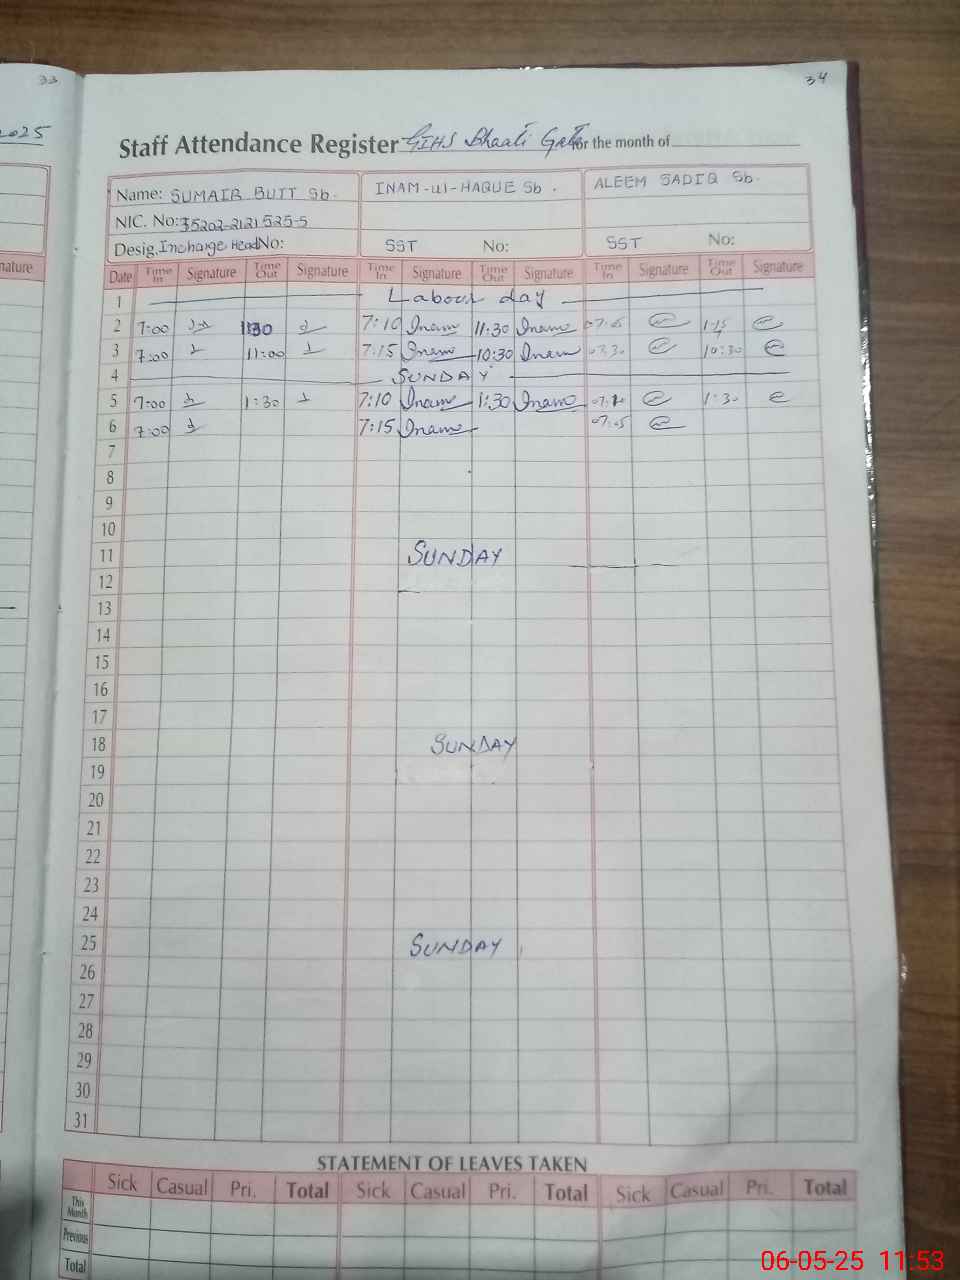 33
34
2025
Staff Attendance Register GIHS Bhaati Gate for the month of
Name: SUMAIR BUTT Sb. INAM-Ul-HAQUE Sb. ALEEM SADIQ Sb.
NIC. No: 35202-2121525-5
Desig. Incharge Head No: SST No: SST No:
nature
Date Time In Signature Time Out Signature Time In Signature Time Out Signature Time In Signature Time Out Signature
1 Labour day
2 7:00 7:10 Inam 11:30 Inam 1:15
3 7:00 11:00 7:15 Inam 10:30 Inam 10:30
4 SUNDAY
5 7:00 1:30 7:10 Inam 1:30 Inam 1:30
6 7:00 7:15 Inam 07:05
7
8
9
10
11 SUNDAY
12
13
14
15
16
17
18 SUNDAY
19
20
21
22
23
24
25 SUNDAY
26
27
28
29
30
31
STATEMENT OF LEAVES TAKEN
Sick Casual Pri. Total Sick Casual Pri. Total Sick Casual Pri. Total
This Month
Previous
Total
06-05-25 11:53